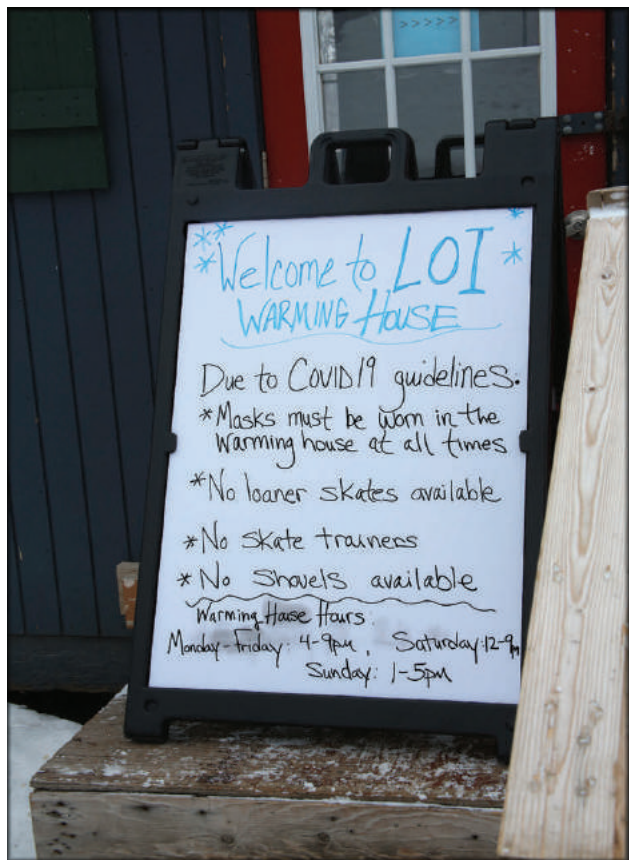 >>>>>
Welcome to LOI
WARMING HOUSE
Due to COVID19 guidelines:
*Masks must be worn in the
warming house at all times
*No loaner skates available
*No skate trainers
*No shovels available
Warming House Hours:
Monday-Friday: 4-9pm, Saturday:12-9pm
Sunday: 1-5pm